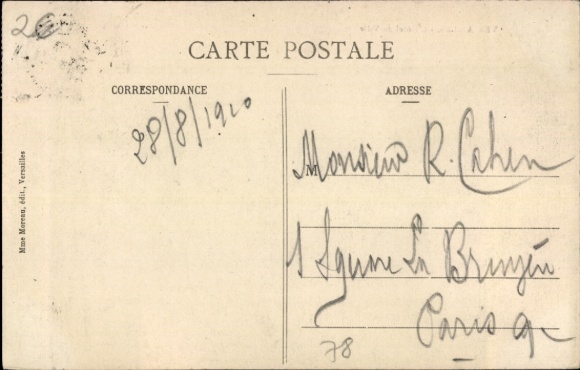 2€
CARTE POSTALE
CORRESPONDANCE
ADRESSE
28/8/1910
Monsieur R. Cahen
1 Square La Bruyère
Paris 9e
78
Mme Moreau, édit., Versailles